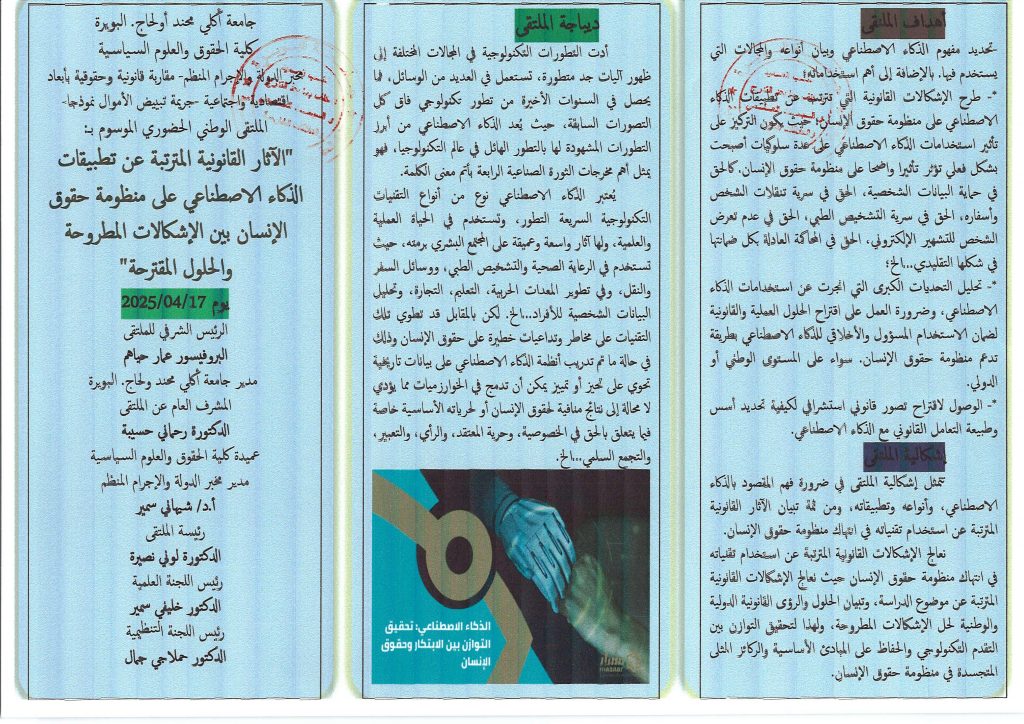 أهداف الملتقى
تحديد مفهوم الذكاء الاصطناعي وبيان أنواعه والمجالات التي
يستخدم فيها، بالإضافة إلى أهم استخداماته؛
*- طرح الإشكالات القانونية التي تترتب عن تطبيقات الذكاء
الاصطناعي على منظومة حقوق الإنسان، حيث يكون التركيز على
تأثير استخدامات الذكاء الاصطناعي على عدة سلوكيات أصبحت
بشكل فعلي تؤثر تأثيرا واضحا على منظومة حقوق الإنسان. كالحق
في حماية البيانات الشخصية، الحق في سرية تنقلات الشخص
وأسفاره، الحق في سرية التشخيص الطبي، الحق في عدم تعرض
الشخص للتشهير الإلكتروني، الحق في المحاكمة العادلة بكل ضمانتها
في شكلها التقليدي...الخ؛
*- تحليل التحديات الكبرى التي انجرت عن استخدامات الذكاء
الاصطناعي، وضرورة العمل على اقتراح الحلول العملية والقانونية
لضمان الاستخدام المسؤول والأخلاقي للذكاء الاصطناعي بطريقة
تدعم منظومة حقوق الإنسان. سواء على المستوى الوطني أو
الدولي.
*- الوصول لاقتراح تصور قانوني استشرافي لكيفية تحديد أسس
وطبيعة التعامل القانوني مع الذكاء الاصطناعي.
إشكالية الملتقى
تتمثل إشكالية الملتقى في ضرورة فهم المقصود بالذكاء
الاصطناعي، وأنواعه وتطبيقاته، ومن ثمة تبيان الآثار القانونية
المترتبة عن استخدام تقنياته في انتهاك منظومة حقوق الإنسان.
نعالج الإشكالات القانونية المترتبة عن استخدام تقنياته
في انتهاك منظومة حقوق الإنسان حيث نعالج الإشكالات القانونية
المترتبة عن موضوع الدراسة، وتبيان الحلول والرؤى القانونية الدولية
والوطنية لحل الإشكالات المطروحة، ولهذا لتحقيق التوازن بين
التقدم التكنولوجي والحفاظ على المبادئ الأساسية والركائز المثلى
المتجسدة في منظومة حقوق الإنسان.
ديباجة الملتقى
أدت التطورات التكنولوجية في المجالات المختلفة إلى
ظهور آليات جد متطورة، تستعمل في العديد من الوسائل، فما
يحصل في السنوات الأخيرة من تطور تكنولوجي فاق كل
التصورات السابقة، حيث يُعد الذكاء الاصطناعي من أبرز
التطورات المشهودة لها بالتطور الهائل في عالم التكنولوجيا، فهو
يمثل أهم مخرجات الثورة الصناعية الرابعة بأتم معنى الكلمة.
يُعتبر الذكاء الاصطناعي نوع من أنواع التقنيات
التكنولوجية السريعة التطور، وتستخدم في الحياة العملية
والعلمية، ولها آثار واسعة وعميقة على المجتمع البشري برمته، حيث
تستخدم في الرعاية الصحية والتشخيص الطبي، ووسائل السفر
والنقل، وفي تطوير المعدات الحربية، التعليم، التجارة، وتحليل
البيانات الشخصية للأفراد...الخ. لكن بالمقابل قد تطوي تلك
التقنيات على مخاطر وتداعيات خطيرة على حقوق الإنسان وذلك
في حالة ما تم تدريب أنظمة الذكاء الاصطناعي على بيانات تاريخية
تحوي على تحيز أو تمييز يمكن أن تدمج في الخوارزميات مما يؤدي
لا محالة إلى نتائج منافية لحقوق الإنسان أو لحرياته الأساسية خاصة
فيما يتعلق بالحق في الخصوصية، وحرية المعتقد، والرأي، والتعبير،
والتجمع السلمي...الخ.
الذكاء الاصطناعي: تحقيق
التوازن بين الابتكار وحقوق
الإنسان
جامعة أكلي محند أولحاج. البويرة
كلية الحقوق والعلوم السياسية
مخبر الدولة والإجرام المنظم- مقاربة قانونية وحقوقية بأبعاد
اقتصادية واجتماعية -جريمة تبييض الأموال نموذجا-
الملتقى الوطني الحضوري الموسوم بـ:
"الآثار القانونية المترتبة عن تطبيقات
الذكاء الاصطناعي على منظومة حقوق
الإنسان بين الإشكالات المطروحة
والحلول المقترحة"
يوم 2025/04/17
الرئيس الشرفي للملتقى
البروفيسور عمار حياهم
مدير جامعة أكلي محند ولحاج. البويرة
المشرف العام عن الملتقى
الدكتورة رحماني حسيبة
عميدة كلية الحقوق والعلوم السياسية
مدير مخبر الدولة والإجرام المنظم
أ.د/ شيهاني سمير
رئيسة الملتقى
الدكتورة لوني نصيرة
رئيس اللجنة العلمية
الدكتور خليفي سمير
رئيس اللجنة التنظيمية
الدكتور حملاجي جمال